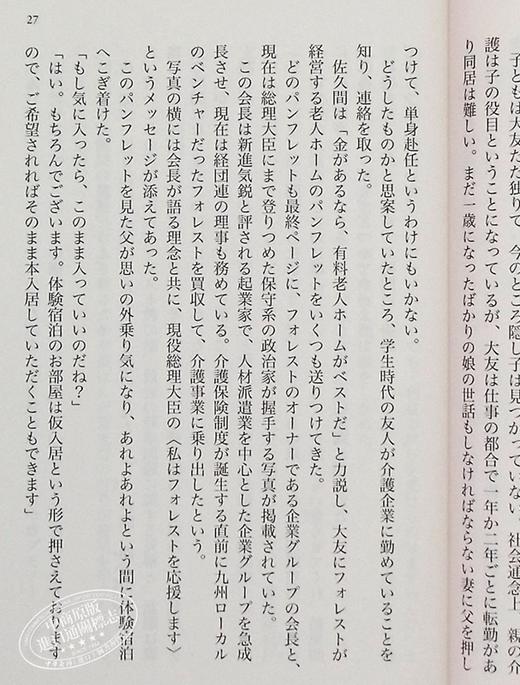 27
子どもは大友ただ独りで、今のところ隠し子は見つかっていない。社会通念上、親の介
護は子の役目ということになっているが、大友は仕事の都合で一年か二年ごとに転勤があ
り同居は難しい。まだ一歳になったばかりの娘の世話もしなければならない妻に父を押し
つけて、単身赴任というわけにもいかない。
どうしたものかと思案していたところ、学生時代の友人が介護企業に勤めていることを
知り、連絡を取った。
佐久間は「金があるなら、有料老人ホームがベストだ」と力説し、大友にフォレストが
経営する老人ホームのパンフレットをいくつも送りつけてきた。
どのパンフレットも最終ページに、フォレストのオーナーである企業グループの会長と、
現在は総理大臣にまで登りつめた保守系の政治家が握手する写真が掲載されていた。
この会長は新進気鋭と評される起業家で、人材派遣業を中心とした企業グループを急成
長させ、現在は経団連の理事も務めている。介護保険制度が誕生する直前に九州ローカル
のベンチャーだったフォレストを買収して、介護事業に乗り出したという。
写真の横には会長が語る理念と共に、現役総理大臣の〈私はフォレストを応援します〉
というメッセージが添えてあった。
このパンフレットを見た父が思いの外乗り気になり、あれよあれよという間に体験宿泊
へこぎ着けた。
「もし気に入ったら、このまま入っていいのだね?」
「はい。もちろんでございます。体験宿泊のお部屋は仮入居という形で押さえております
ので、ご希望されればそのまま本入居していただくこともできます」